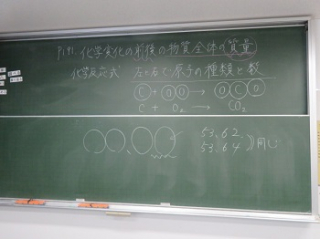 P.191. 化学変化の前後の物質全体の質量
化学反応式 左と右で原子の種類と数
C + O O → O C O
C + O₂ → CO₂
53.62
53.64 同じ